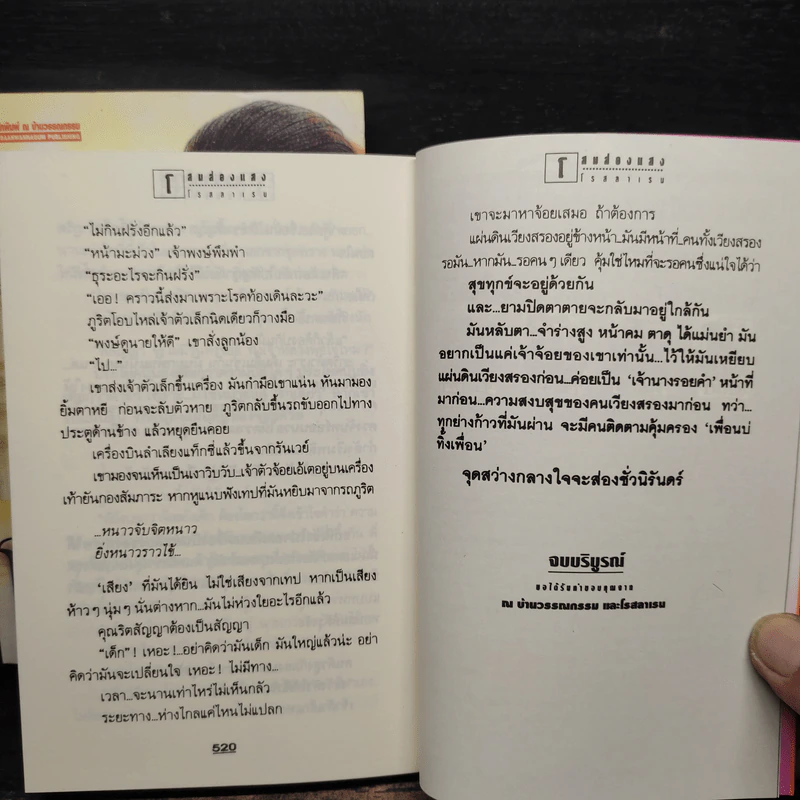 ณ บ้านวรรณกรรม
โ สมส่องแสง
โรสลาเรน
“ไม่กินฝรั่งอีกแล้ว”
“หน้ามะม่วง” เจ้าพงษ์พึมพำ
“ธุระอะไรจะกินฝรั่ง”
“เออ! คราวนี้ส่งมาเพราะโรคท้องเดินละวะ”
ภูริตโอบไหล่เจ้าตัวเล็กนิดเดียวก็วางมือ
“พงษ์ดูนายให้ดี” เขาสั่งลูกน้อง
“ไป...”
เขาส่งเจ้าตัวเล็กขึ้นเครื่อง มันกำมือเขาแน่น หันมามอง
ยิ้มตาหยี ก่อนจะลับตัวหาย ภูริตกลับขึ้นรถขับออกไปทาง
ประตูด้านข้าง แล้วหยุดยืนคอย
เครื่องบินลำเลียงแท็กซี่แล้วขึ้นจากรันเวย์
เขามองจนเห็นเป็นเงาวิบวับ...เจ้าตัวจ้อยเอ้เตอยู่บนเครื่อง
เท้ายันกองสัมภาระ หากหูแนบฟังเทปที่มันหยิบมาจากรถภูริต
...หนาวจับจิตหนาว
ยิ่งหนาวราวไข้...
‘เสียง’ ที่มันได้ยิน ไม่ใช่เสียงจากเทป หากเป็นเสียง
ห้าวๆ นุ่มๆ นั่นต่างหาก...มันไม่ห่วงใยอะไรอีกแล้ว
คุณริตสัญญาต้องเป็นสัญญา
“เด็ก”! เหอะ!...อย่าคิดว่ามันเด็ก มันใหญ่แล้วน่ะ อย่า
คิดว่ามันจะเปลี่ยนใจ เหอะ! ไม่มีทาง...
เวลา...จะนานเท่าไหร่ไม่เห็นกลัว
ระยะทาง...ห่างไกลแค่ไหนไม่แปลก
520
โ สมส่องแสง
โรสลาเรน
เขาจะมาหาจ้อยเสมอ ถ้าต้องการ
แผ่นดินเวียงสรองอยู่ข้างหน้า...มันมีหน้าที่...คนทั้งเวียงสรอง
รอมัน...หากมัน...รอคนๆ เดียว คุ้มใช่ไหมที่จะรอคนซึ่งแน่ใจได้ว่า
สุขทุกข์จะอยู่ด้วยกัน
และ...ยามปิดตาตายจะกลับมาอยู่ใกล้กัน
มันหลับตา...จำร่างสูง หน้าคม ตาดุ ได้แม่นยำ มัน
อยากเป็นแค่เจ้าจ้อยของเขาเท่านั้น...ไว้ให้มันเหยียบ
แผ่นดินเวียงสรองก่อน...ค่อยเป็น ‘เจ้านางรอยคำ’ หน้าที่
มาก่อน...ความสงบสุขของคนเวียงสรองมาก่อน ทว่า...
ทุกย่างก้าวที่มันผ่าน จะมีคนติดตามคุ้มครอง ‘เพื่อนบ่
ทิ้งเพื่อน’
จุดสว่างกลางใจจะส่องชั่วนิรันดร์
จบบริบูรณ์
ขอได้รับคำขอบคุณจาก
ณ บ้านวรรณกรรม และโรสลาเรน